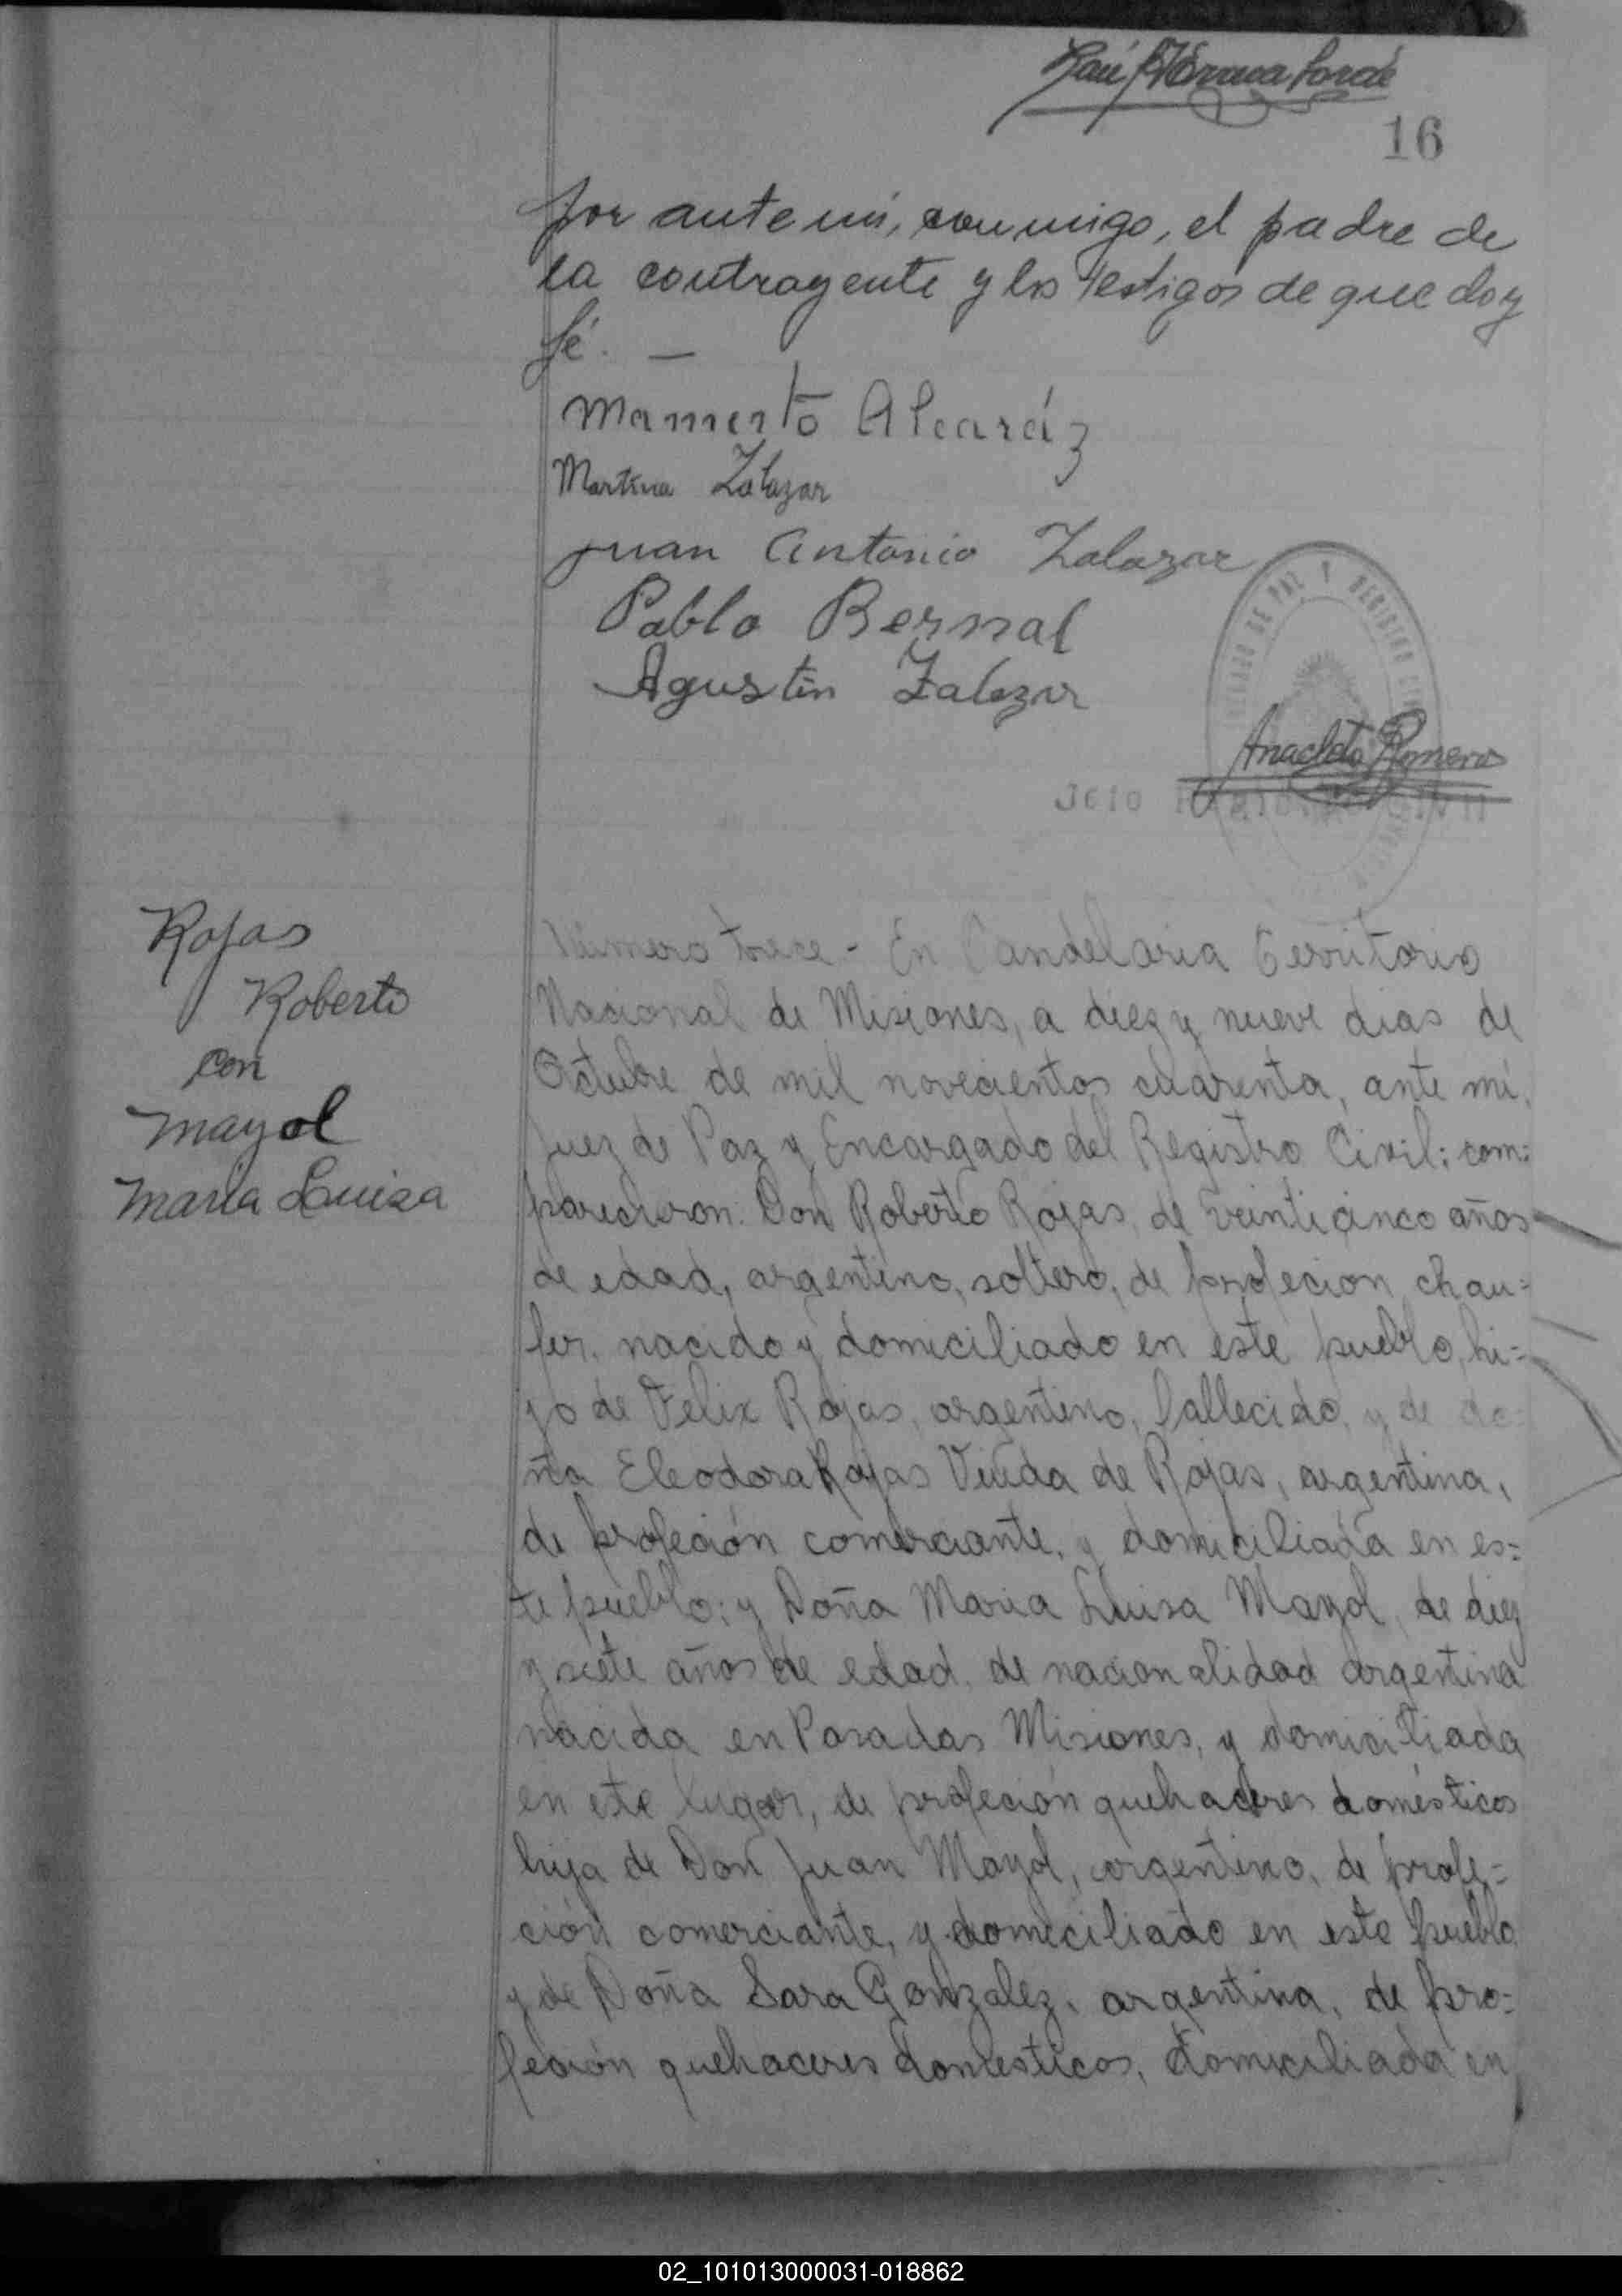 16
por ante mí, conmigo, el padre de
la contrayente y los testigos de que doy
fé. —
Mamerto Alcaráz
Martina Zalazar
Juan Antonio Zalazar
Pablo Bernal
Agustín Zalazar
JUZGADO DE PAZ Y REGISTRO CIVIL
Anacleto Romero
Rojas
Roberto
con
Mayol
María Luisa
Número trece - En Candelaria Territorio
Nacional de Misiones, a diez y nueve dias de
Octubre de mil novecientos cuarenta, ante mí,
Juez de Paz y Encargado del Registro Civil: com=
parecieron: Don Roberto Rojas, de veinticinco años
de edad, argentino, soltero, de profecion chau=
fer, nacido y domiciliado en este pueblo, hi=
jo de Felix Rojas, argentino, fallecido, y de do=
ña Eleodora Rojas Viuda de Rojas, argentina,
de profeción comerciante, y domiciliada en es=
te pueblo; y Doña Maria Luisa Mayol, de diez
y siete años de edad, de nacionalidad argentina
nacida en Posadas Misiones, y domiciliada
en este lugar, de profeción quehaceres domésticos
hija de Don Juan Mayol, argentino, de profe=
ción comerciante, y domiciliado en este pueblo
y de Doña Sara Gonzalez, argentina, de pro=
feción quehaceres domesticos, domiciliada en
02_101013000031-018862